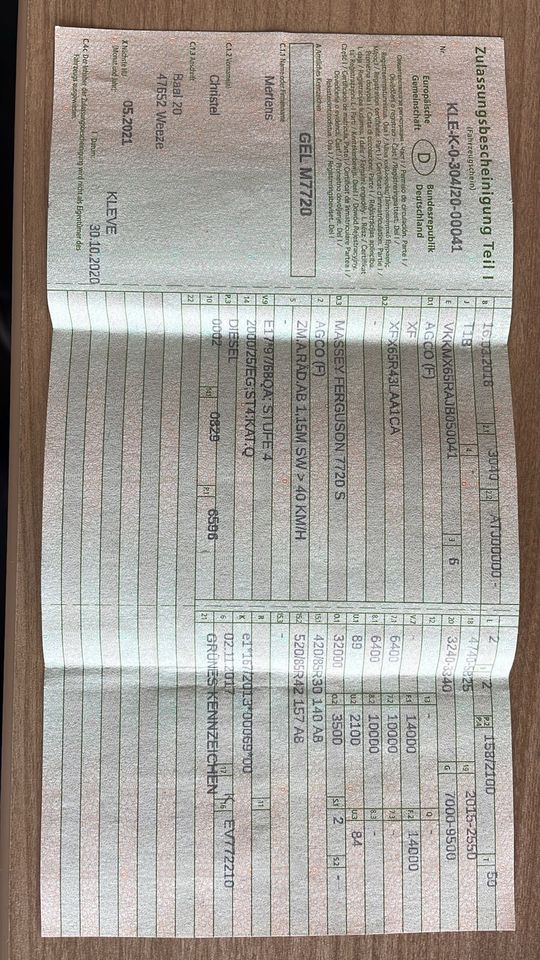 Zulassungsbescheinigung Teil I
(Fahrzeugschein)
Nr. KLE-K-0-304/20-00041
Europäische Gemeinschaft
D
Bundesrepublik Deutschland
A Amtliches Kennzeichen
GEL M7720
C.1.1 Name oder Firmenname
Mertens
C.1.2 Vorname(n)
Christel
C.1.3 Anschrift
Baal 20
47652 Weeze
X Nächste HU
(Monat und Jahr)
05.2021
I Datum:
KLEVE
30.10.2020
C.4c Der Inhaber der Zulassungsbescheinigung wird nicht als Eigentümer des Fahrzeugs ausgewiesen.
B 16.03.2018 2.1 3040 2.2
J T1B 4 -
E VKKMX65RAJB050041 3 6
D.1 AGCO (F)
XF
D.2 XFX65R43LAA1CA
-
D.3 MASSEY FERGUSON 7720 S
2 AGCO (F)
5 ZM.A.RÄD.AB 1,15M SW > 40 KM/H
-
V.9
14 2000/25/EG;ST4;KAT.Q
P.3 DIESEL
10 0002 14.1 0829 P.1 6596
22
L 2 9 2 P.2 P.4 158/2100 T 50
18 19 2015-2550
20 3240-3340 G 7000-9500
12 - 13 - Q -
V.7 - F.1 14000 F.2 14000
7.1 6400 7.2 10000 7.3 -
8.1 6400 8.2 10000 8.3 -
U.1 89 U.2 2100 U.3 84
O.1 32000 O.2 3500 S.1 2 S.2 -
15.1 420/85R30 140 A8
15.2 520/85R42 157 A8
15.3 -
R 11
K e1*167/2013*00069*00
6 02.11.2017 17 K 16 EV772210
21 GRÜNES KENNZEICHEN